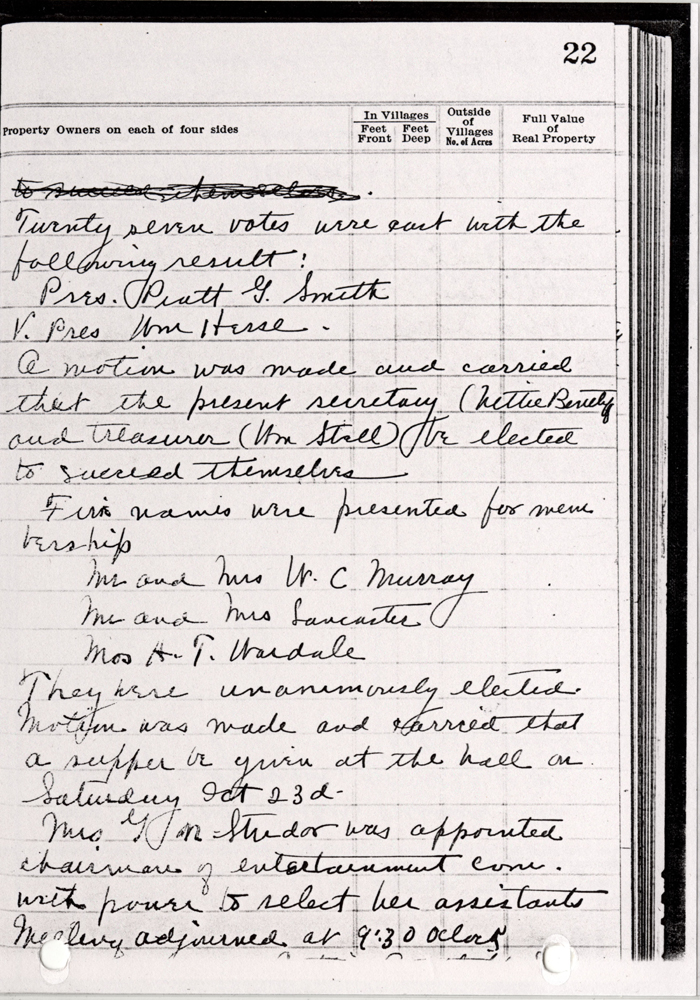 22
Property Owners on each of four sides
In Villages
Feet Front
Feet Deep
Outside of Villages No. of Acres
Full Value of Real Property
to succeed themselves.
Twenty seven votes were cast with the
following result:
Pres. Pratt G. Smith
V. Pres Wm Hesse.
A motion was made and carried
that the present secretary (Nettie
and treasurer (Wm Stoll) be elected
to succeed themselves
Five names were presented for mem
bership
Mr and Mrs W. C Murray
Mr and Mrs Lancaster
Mrs H. T. Wardale
They were unanimously elected.
Motion was made and carried that
a supper be given at the hall on
Saturday Oct 23d-
Mrs G M Studor was appointed
chairman of entertainment com.
with power to select her assistants
Meeting adjourned at 9:30 Oclock